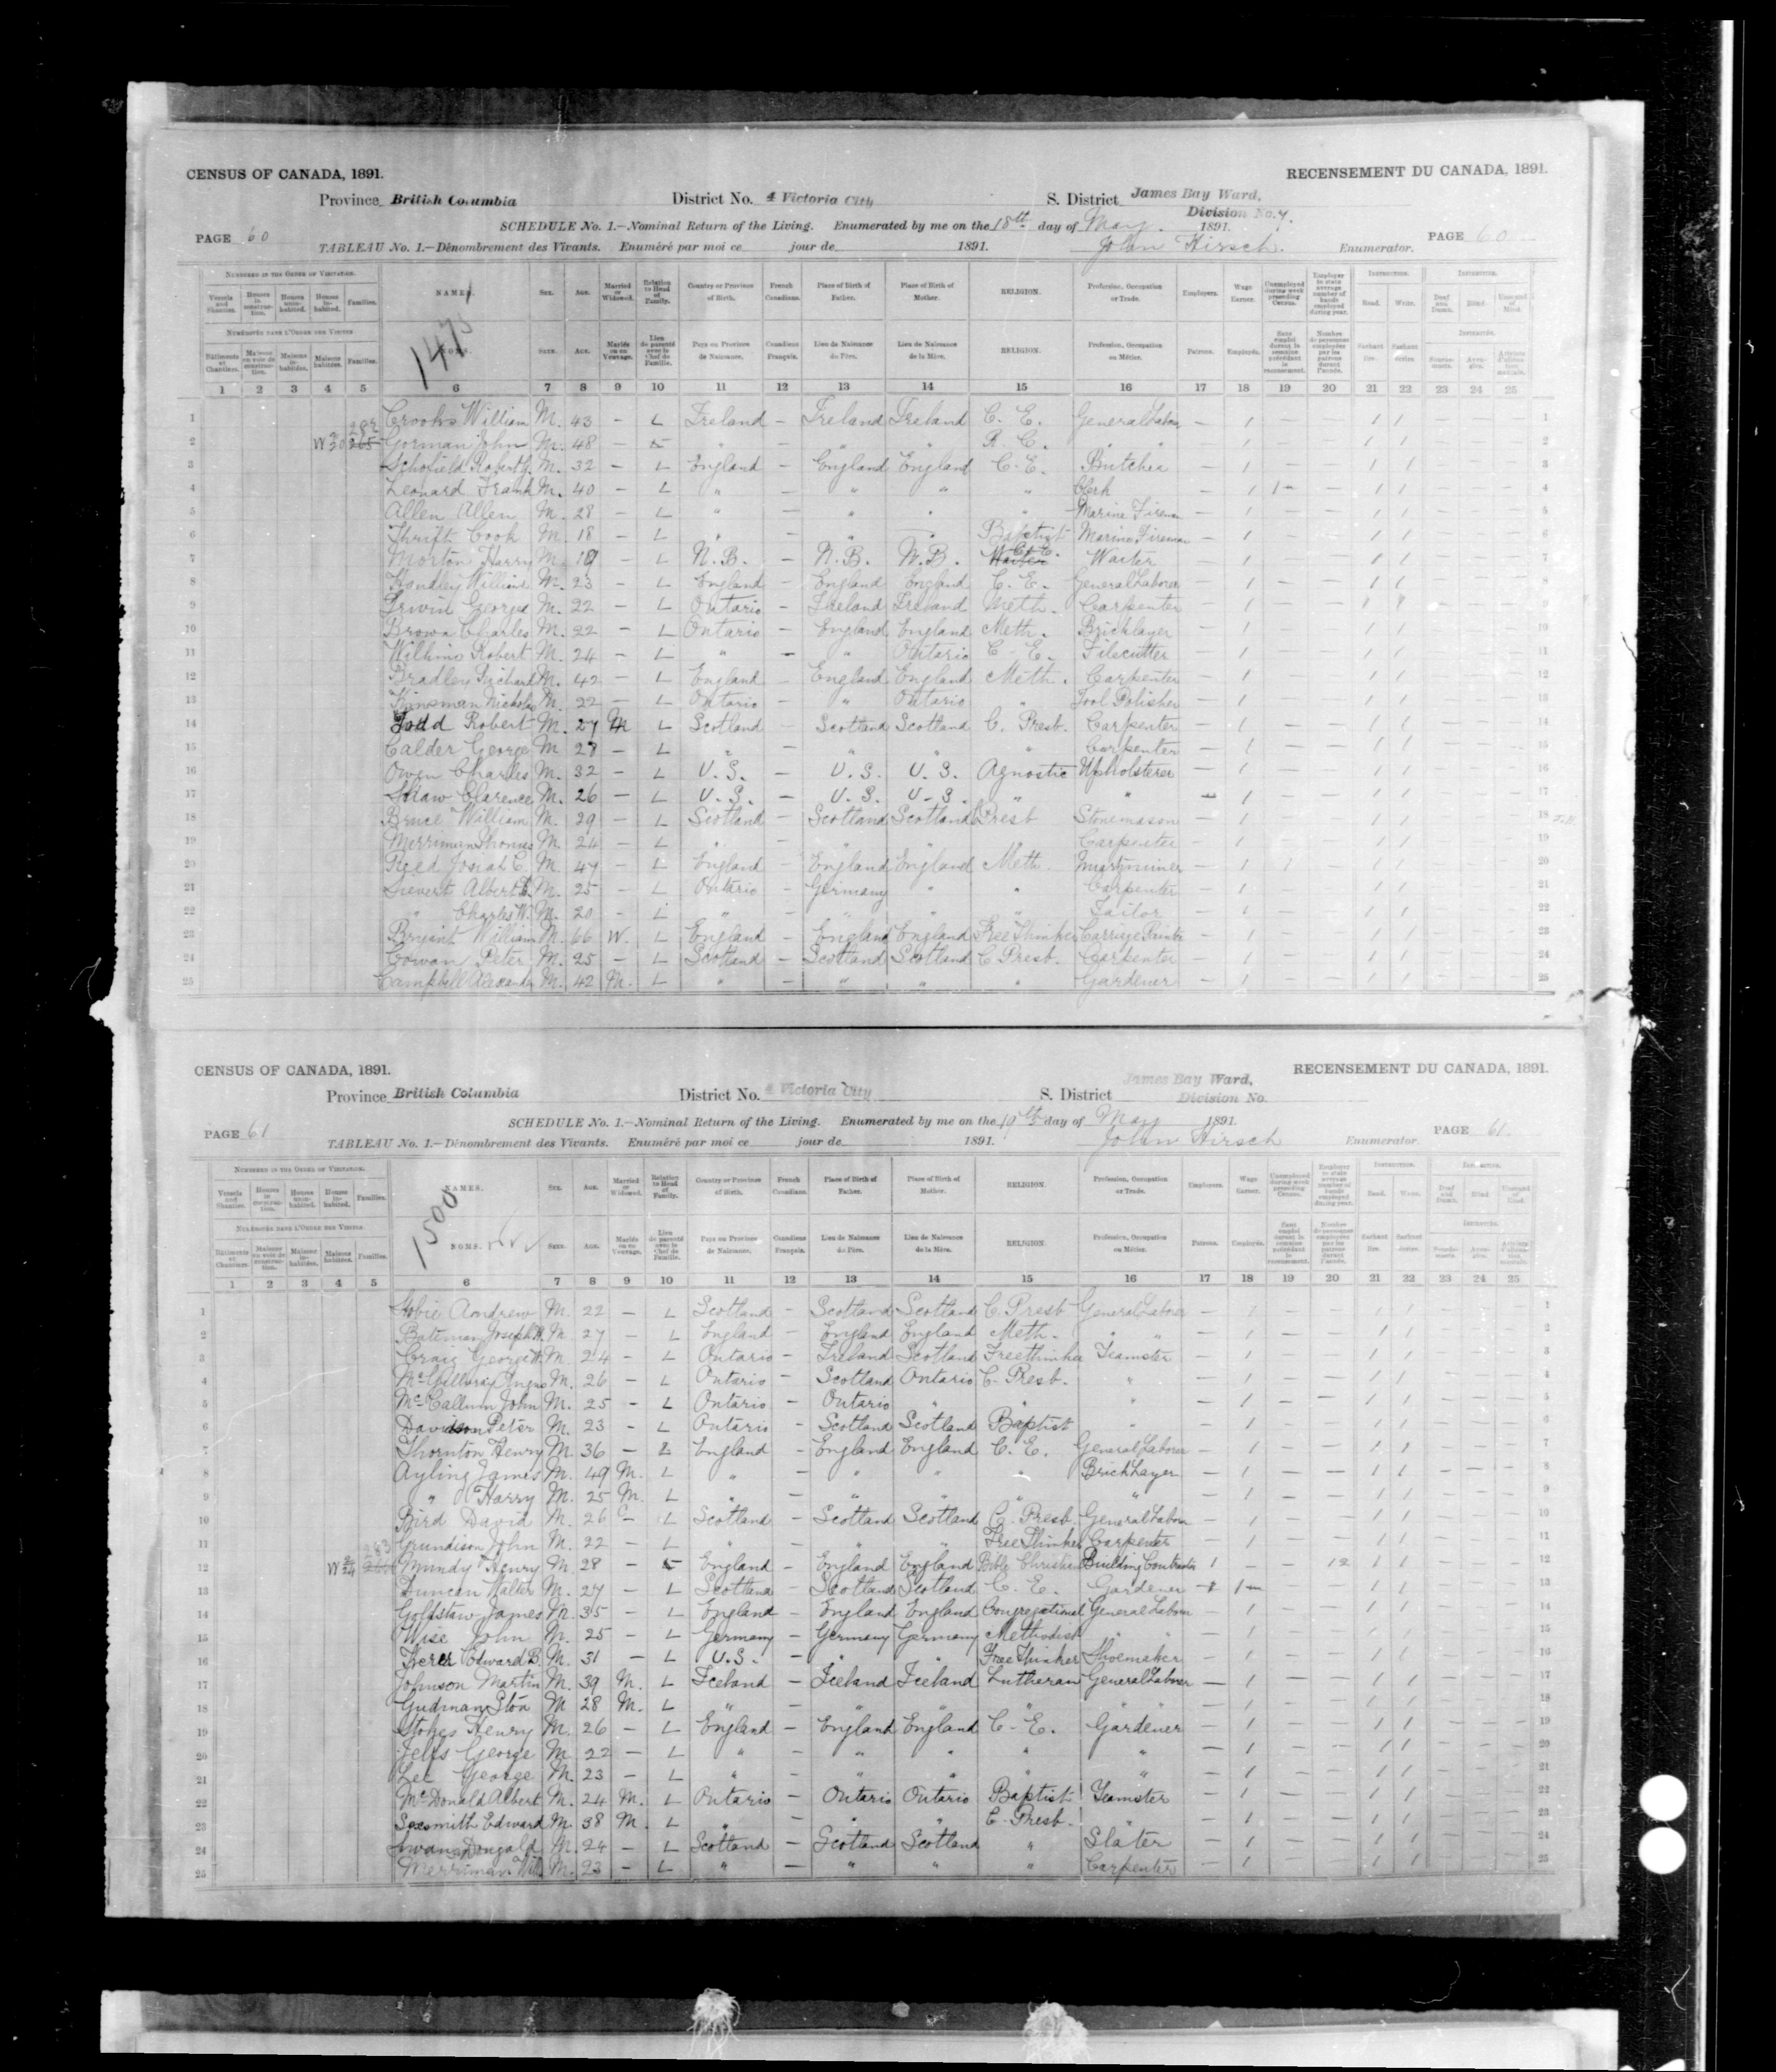 CENSUS OF CANADA, 1891. RECENSEMENT DU CANADA, 1891.
Province British Columbia District No. 4 Victoria City S. District James Bay Ward,
Division No. 7.
SCHEDULE No. 1.—Nominal Return of the Living. Enumerated by me on the 18th day of May 1891.
PAGE 60 TABLEAU No. 1.—Dénombrement des Vivants. Enuméré par moi ce jour de 1891. John Hirsch. Enumerator. PAGE 60
NUMBERED IN THE ORDER OF VISITATION. NAMES. SEX. AGE. Married or Widowed. Relation to Head of Family. Country or Province of Birth. French Canadians. Place of Birth of Father. Place of Birth of Mother. RELIGION. Profession, Occupation or Trade. Employers. Wage Earner. Unemployed during week preceding Census. Employer to state average number of hands employed during year. INSTRUCTION. Read. Write. Deaf and Dumb. Blind. Unsound of Mind.
Vessels and Shanties. Houses in construction. Houses uninhabited. Houses inhabited. Families.
1 2 3 4 5 6 7 8 9 10 11 12 13 14 15 16 17 18 19 20 21 22 23 24 25
1 Crooks William M. 43 – L Ireland – Ireland Ireland C. E. General Labor – 1 – – 1 1 – – – 1
2 Gorman John M. 48 – " – " " R. C. " " – 1 – – 1 1 – – – 2
3 Schofield Robert J. M. 32 – L England – England England C. E. Butcher – 1 – – 1 1 – – – 3
4 Leonard Frank M. 40 – L " – " " " Clerk – 1 1 – 1 1 – – – 4
5 Allen Allen M. 28 – L " – " " " Marine Fireman – 1 – – 1 1 – – – 5
6 Thrift Cook M. 18 – L " – " " Baptist Marine Fireman – 1 – – 1 1 – – – 6
7 Morton Harry M. 19 – L N. B. – N. B. N. B. C. E. Waiter – 1 – – 1 1 – – – 7
8 William M. 23 – L England – England England C. E. General Laborer – 1 – – 1 1 – – – 8
9 Irwin George M. 22 – L Ontario – Ireland Ireland Meth. Carpenter – 1 – – 1 1 – – – 9
10 Brown Charles M. 22 – L Ontario – England England Meth. Bricklayer – 1 – – 1 1 – – – 10
11 Wilkins Robert M. 24 – L " – " Ontario C. E. Filecutter – 1 – – 1 1 – – – 11
12 Bradley Richard M. 42 – L England – England England Meth. Carpenter – 1 – – 1 1 – – – 12
13 Kinsman Nicholas M. 22 – L Ontario – " Ontario " Tool Polisher – 1 – – 1 1 – – – 13
14 Todd Robert M. 27 M L Scotland – Scotland Scotland C. Presb. Carpenter – 1 – – 1 1 – – – 14
15 Calder George M 27 – L " – " " " Carpenter – 1 – – 1 1 – – – 15
16 Owen Charles M. 32 – L U. S. – U. S. U. S. Agnostic Upholsterer – 1 – – 1 1 – – – 16
17 Shaw Clarence M. 26 – L U. S. – U. S. U. S. " " – 1 – – 1 1 – – – 17
18 Bruce William M. 29 – L Scotland – Scotland Scotland Presb Stonemason – 1 – – 1 1 – – – 18
19 Merriman Thomas M. 24 – L " – " " " Carpenter – 1 – – 1 1 – – – 19
20 Reed Josiah C. M. 47 – L England – England England Meth. – 1 1 – 1 1 – – – 20
21 Sievert Albert M. 25 – L Ontario – Germany " " Carpenter – 1 – – 1 1 – – – 21
22 " Charles W. M. 20 – L " – " " " Tailor – 1 – – 1 1 – – – 22
23 Bryant William M. 66 W. L England – England England Free Thinker Carriage Painter – 1 – – 1 1 – – – 23
24 Cowan Peter M. 25 – L Scotland – Scotland Scotland C Presb. Carpenter – 1 – – 1 1 – – – 24
25 Campbell Alexander M. 42 M. L " – " " " Gardener – 1 – – 1 1 – – – 25
CENSUS OF CANADA, 1891. RECENSEMENT DU CANADA, 1891.
Province British Columbia District No. 4 Victoria City S. District James Bay Ward,
Division No.
SCHEDULE No. 1.—Nominal Return of the Living. Enumerated by me on the 19th day of May 1891.
PAGE 61 TABLEAU No. 1.—Dénombrement des Vivants. Enuméré par moi ce jour de 1891. John Hirsch Enumerator. PAGE 61
1500
1 2 3 4 5 6 7 8 9 10 11 12 13 14 15 16 17 18 19 20 21 22 23 24 25
1 Andrew M. 22 – L Scotland – Scotland Scotland C. Presb General Laborer – 1 – – 1 1 – – – 1
2 Bateman Joseph M. 27 – L England – England England Meth. " " – 1 – – 1 1 – – – 2
3 Craig George M. 24 – L Ontario – Ireland Scotland Freethinker Teamster – 1 – – 1 1 – – – 3
4 McGillvray Angus M. 26 – L Ontario – Scotland Ontario C. Presb. " – 1 – – 1 1 – – – 4
5 McCallum John M. 25 – L Ontario – Ontario " " " – 1 – – 1 1 – – – 5
6 Davidson Peter M. 23 – L Ontario – Scotland Scotland Baptist " – 1 – – 1 1 – – – 6
7 Thornton Henry M. 36 – L England – England England C. E. General Laborer – 1 – – 1 1 – – – 7
8 Ayling James M. 49 M. L " – " " " Brick Layer – 1 – – 1 1 – – – 8
9 " Harry M. 25 M. L " – " " " " – 1 – – 1 1 – – – 9
10 Bird David M. 26 – L Scotland – Scotland Scotland C. Presb. General Labor – 1 – – 1 1 – – – 10
11 Grundison John M. 22 – L " – " " Free Thinker Carpenter – 1 – – 1 1 – – – 11
12 Mundy Henry M. 28 – England – England England Bible Christian Building Contractor 1 – – 12 1 1 – – – 12
13 Duncan Walter M. 27 – L Scotland – Scotland Scotland C. E. Gardener – 1 – – 1 1 – – – 13
14 Goldstaw James M. 35 – L England – England England Congregational General Labor – 1 – – 1 1 – – – 14
15 Wise John M. 25 – L Germany – Germany Germany Methodist " " – 1 – – 1 1 – – – 15
16 Edward B. M. 31 – L U. S. – " " Free Thinker Shoemaker – 1 – – 1 1 – – – 16
17 Johnson Martin M. 39 M. L Iceland – Iceland Iceland Lutheran General Laborer – 1 – – 1 1 – – – 17
18 M 28 M. L " – " " " " " – 1 – – 1 1 – – – 18
19 Stokes Henry M. 26 – L England – England England C. E. Gardener – 1 – – 1 1 – – – 19
20 George M. 22 – L " – " " " " – 1 – – 1 1 – – – 20
21 Lee George M. 23 – L " – " " " " – 1 – – 1 1 – – – 21
22 McDonald Albert M. 24 M. L Ontario – Ontario Ontario Baptist Teamster – 1 – – 1 1 – – – 22
23 Sexsmith Edward M. 38 M. L " – " " C. Presb. " – 1 – – 1 1 – – – 23
24 Dougald M. 24 – L Scotland – Scotland Scotland " Slater – 1 – – 1 1 – – – 24
25 Merriman Will. M. 23 – L " – " " " Carpenter – 1 – – 1 1 – – – 25